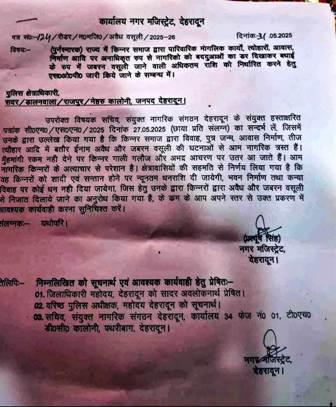 कार्यालय नगर मजिस्ट्रेट, देहरादून
पत्र सं०-124/रीडर/न0म0जि0/अवैध वसूली/2025-26 दिनांक-31.05.2025
विषयः- (पुर्नस्मारक) राज्य में किन्नर समाज द्वारा पारिवारिक मांगलिक कार्यों, त्योहारों, आवास,
निर्माण आदि पर अनाधिकृत रुप से नागरिकों को बदद्दुआओं का डर दिखाकर बधाई
के रुप में जबरन वसूली जाने वाली अधिकतम राशि को निर्धारित करने हेतु
एस0ओ0पी0 जारी किये जाने के सम्बन्ध में।
पुलिस क्षेत्राधिकारी,
सदर/डालनवाला/राजपुर/नेहरु कालोनी, जनपद देहरादून।
उपरोक्त विषयक सचिव, संयुक्त नागरिक संगठन देहरादून के संयुक्त हस्ताक्षरित
पत्रांक सी0एम0/एस0एन0/2025 दिनांक 27.05.2025 (छाया प्रति संलग्न) का सन्दर्भ लें, जिसमें
उनके द्वारा उल्लेख किया गया है कि किन्नर समाज द्वारा विवाह, पुत्र जन्म, आवास निर्माण, तीज
त्यौहार आदि में बतौर ईनाम अवैध और जबरन वसूली की घटनाओं से आम नागरिक त्रस्त हैं।
मुँहमांगी रकम नही देने पर किन्नर गाली गलौज और अभद्र आचरण पर उतर आते हैं। आम
नागरिक किन्नरों के अत्याचार से परेशान है। क्षेत्रवासियों की सहमति से निर्णय लिया गया है कि
वह किन्नरों को शादी एवं सन्तान होने पर न्यूनतम धनराशि दी जायेगी, भवन निर्माण तथा कन्या
विवाह पर कोई धन नही दिया जायेगा, जिस हेतु उनके द्वारा किन्नरों द्वारा अवैध और जबरन वसूली
से निजात दिलाये जाने का अनुरोध किया गया है, के कम में आप अपने स्तर से उक्त प्रकरण में
आवश्यक कार्यवाही करना सुनिश्चित करें।
संलग्नक- यथोपरि।
सिंह)
नगर मजिस्ट्रेट,
देहरादून।
निम्नलिखित को सूचनार्थ एवं आवश्यक कार्यवाही हेतु प्रेषितः-
01. जिलाधिकारी महोदय, देहरादून को सादर अवलोकनार्थ प्रेषित।
02. वरिष्ठ पुलिस अधीक्षक, महोदय देहरादून को सूचनार्थ।
03. सचिव, संयुक्त नागरिक संगठन देहरादून, कार्यालय 34 फेज नं0 01, टी0एच0
डी0सी0 कालोनी, पथरीबाग, देहरादून।
नगर मजिस्ट्रेट,
देहरादून।